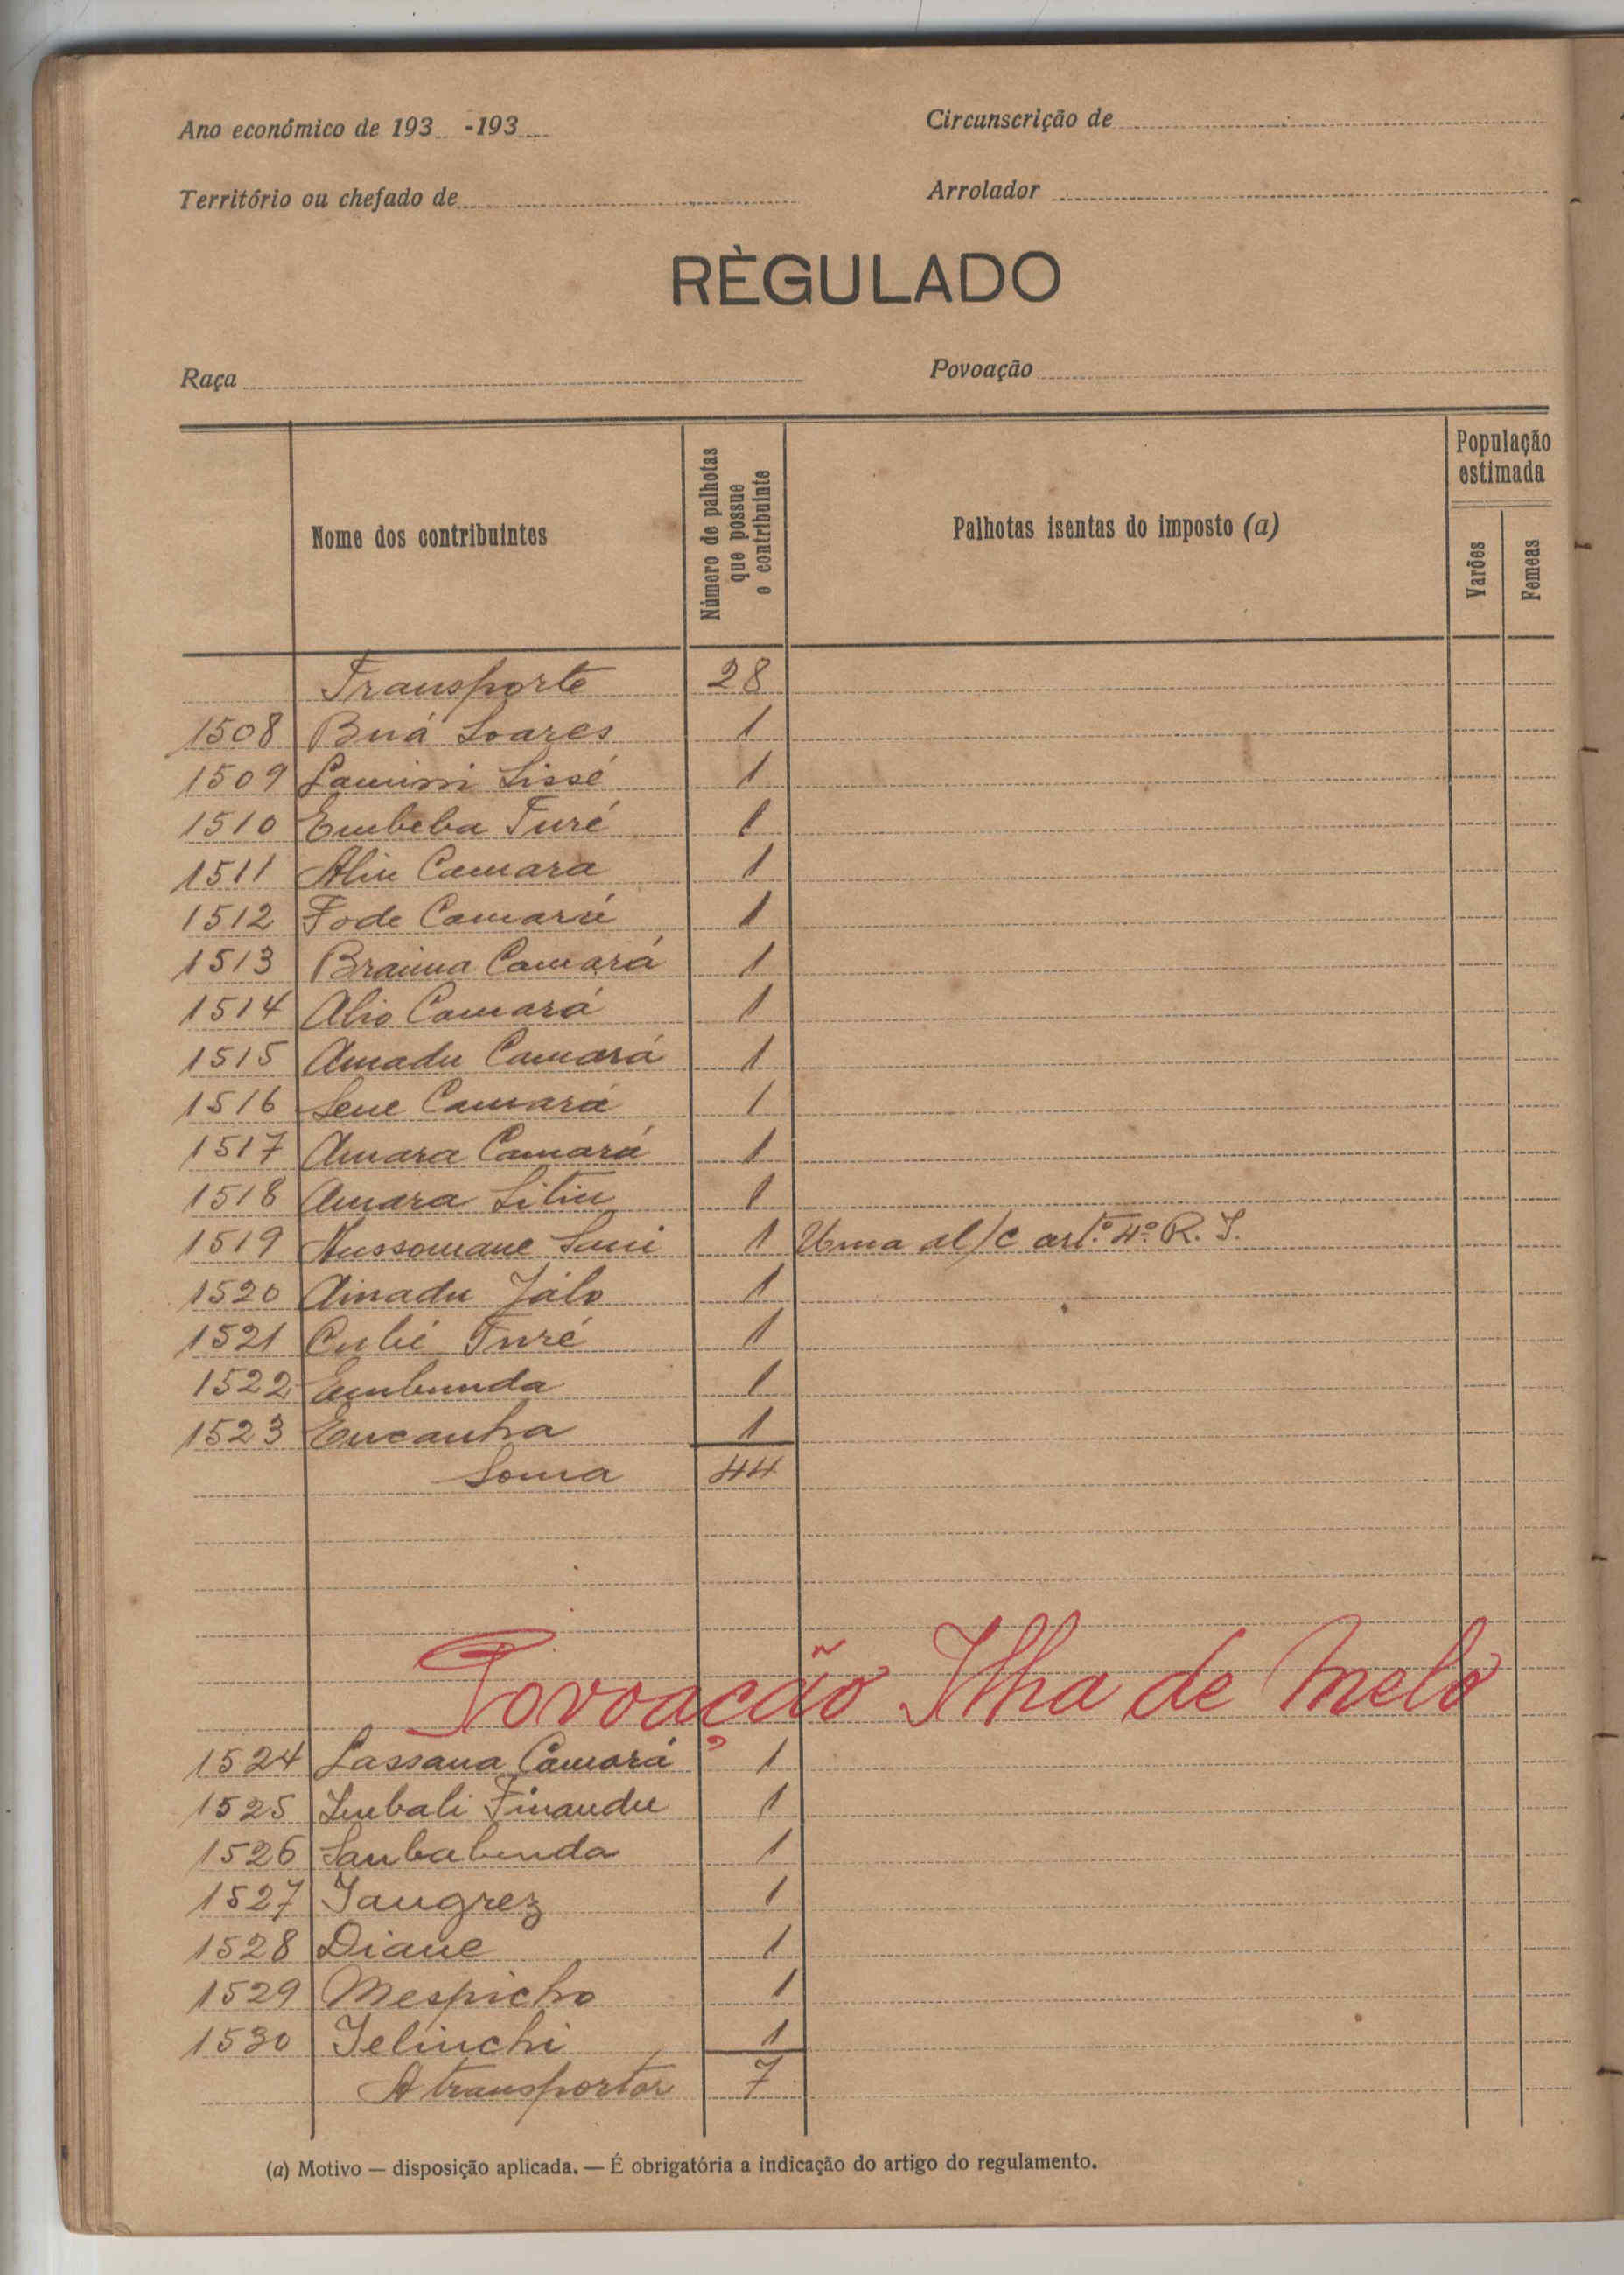 Ano económico de 193 -193
Circunscrição de
Território ou chefado de
Arrolador
RÈGULADO
Raça
Povoação
Nome dos contribuintes
Número de palhotas que possue o contribuinte
Palhotas isentas do imposto (a)
População estimada
Varões
Femeas
Transporte 28
1508 Buá Soares 1
1509 Lamini Sissé 1
1510 Embeba Turé 1
1511 Aliu Camara 1
1512 Fode Camará 1
1513 Braima Camará 1
1514 Alio Camará 1
1515 Amadu Camará 1
1516 Sene Camará 1
1517 Amara Camará 1
1518 Amara Sitiu 1
1519 Aussomane Sani 1 Uma al/c art.º 4º R. I.
1520 Amadu Jaló 1
1521 Turé 1
1522 Embunda 1
1523 Encanha 1
Soma 44
Povoação Ilha de Melo
1524 Lassana Camará 1
1525 Imbali Finandu 1
1526 Sanbabunda 1
1527 Jaugrez 1
1528 Diane 1
1529 Mespicho 1
1530 Jelinchi 1
A transportar 7
(a) Motivo — disposição aplicada. — É obrigatória a indicação do artigo do regulamento.